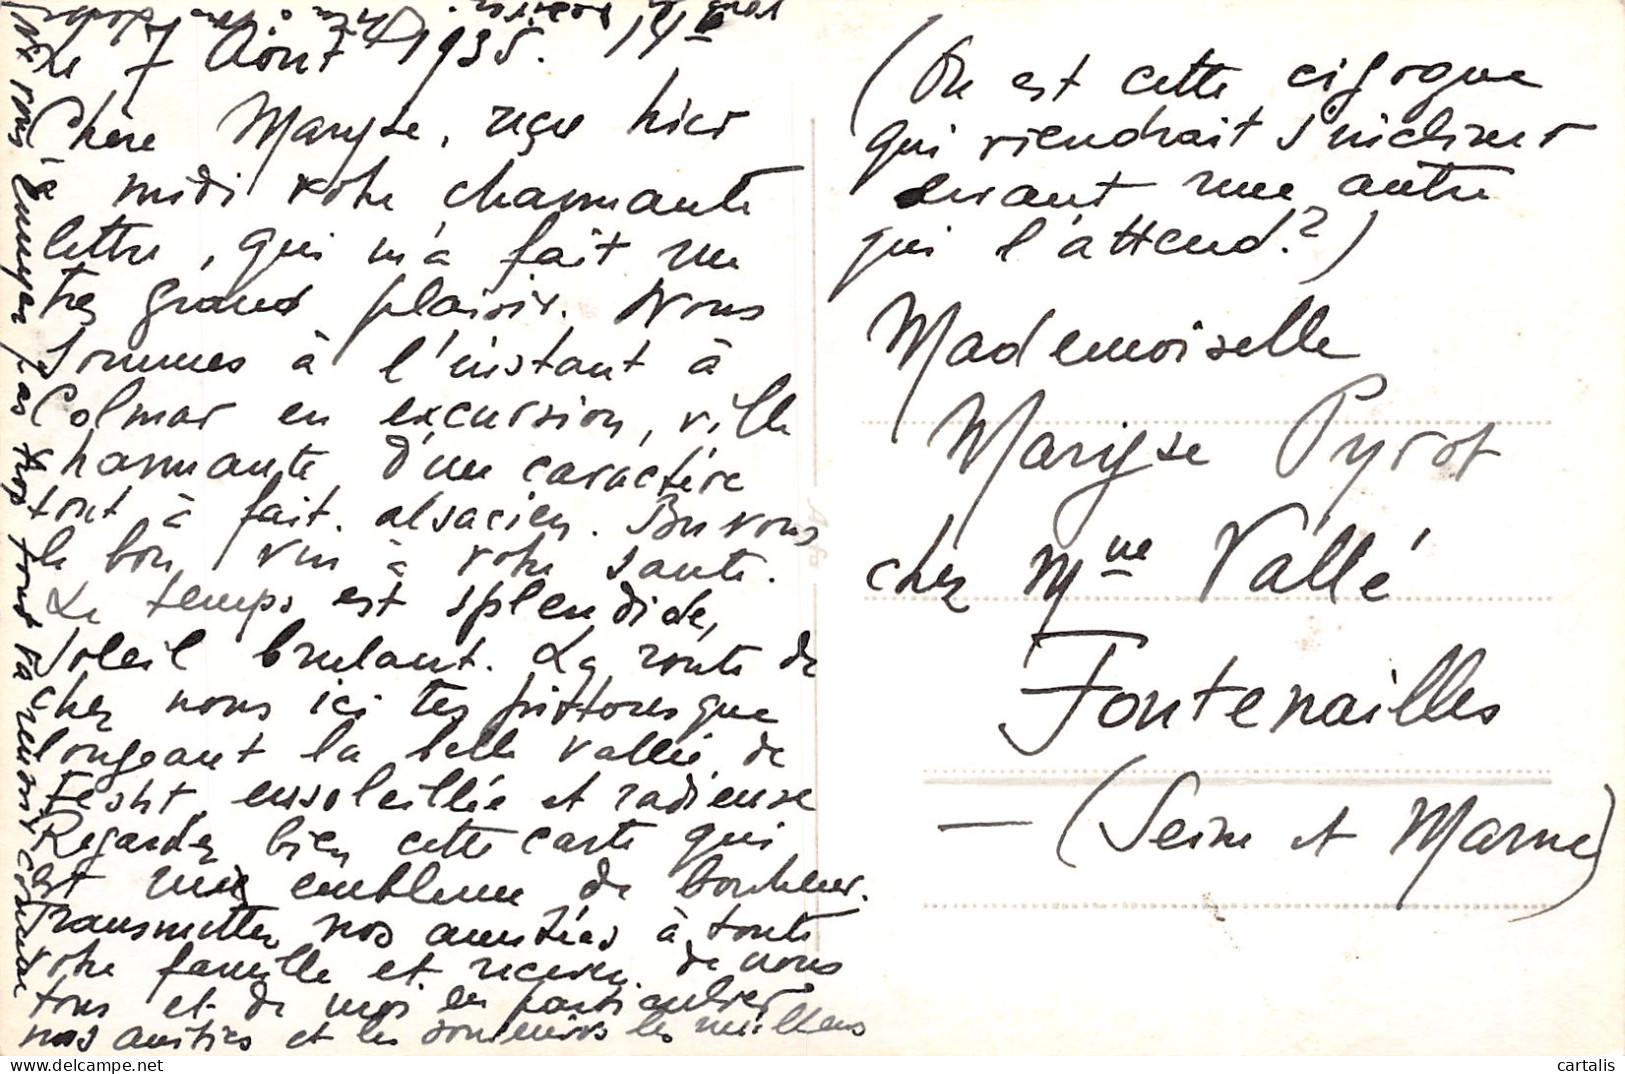 Le 7 Août 1935. 14h
Chère Maryse, reçu hier
à midi votre charmante
lettre, qui m'a fait un
très grand plaisir. Nous
sommes à l'instant à
Colmar en excursion, ville
charmante d'un caractère
tout à fait alsacien. Buvons
le bon vin à votre santé.
Le temps est splendide,
soleil brulant. La route de
chez nous ici très pittoresque
longeant la belle vallée de
Fecht, ensoleillée et radieuse
Regardez bien cette carte qui
est un emblème de bonheur.
Transmettez nos amitiés à toute
votre famille et recevez de nous
tous et de moi en particulier
nos amitiés et les souvenirs les meilleurs
(Où est cette cigogne
qui viendrait s'incliner
devant une autre
qui l'attend?)
Mademoiselle
Maryse Pyrot
chez Mme Vallé
Fontenailles
— (Seine et Marne)
vous ennuyez pas trop tous va
cartalis